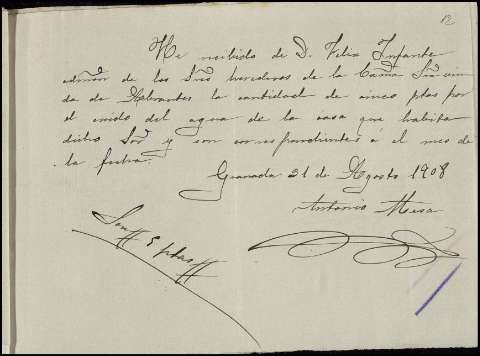 12
He recibido de D. Felix Infante
admor de los Sres herederos de la Exma Sra viu
da de Abrantes la cantidad de cinco ptas por
el cuido del agua de la casa que habita
dicho Sor y son correspondientes á el mes de
la fecha.
Granada 31 de Agosto 1908
Antonio Mesa
Son # 5 ptas #